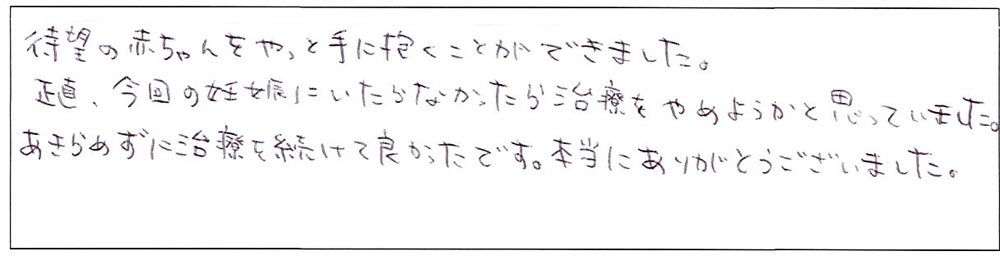 待望の赤ちゃんをやっと手に抱くことができました。
正直、今回の妊娠にいたらなかったら治療をやめようかと思っていました。
あきらめずに治療を続けて良かったです。本当にありがとうございました。